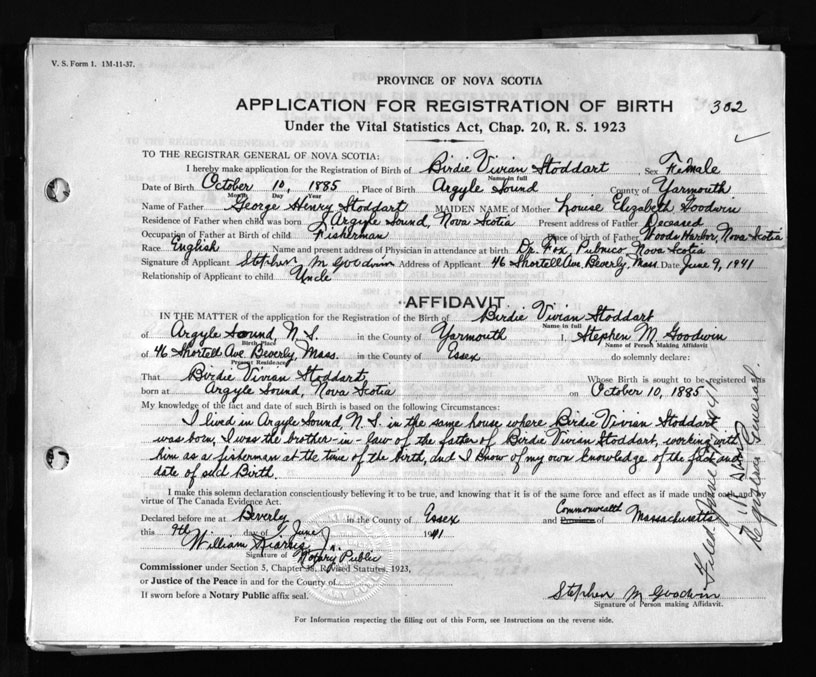 V. S. Form 1. 1M-11-37.
PROVINCE OF NOVA SCOTIA
APPLICATION FOR REGISTRATION OF BIRTH 302
Under the Vital Statistics Act, Chap. 20, R. S. 1923
TO THE REGISTRAR GENERAL OF NOVA SCOTIA:
I hereby make application for the Registration of Birth of Birdie Vivian Stoddart Sex Female
Name in full
Date of Birth October 10, 1885, Place of Birth Argyle Sound County of Yarmouth
Month Day Year
Name of Father George Henry Stoddart MAIDEN NAME of Mother Louise Elizabeth Goodwin
Residence of Father when child was born Argyle Sound, Nova Scotia Present address of Father Deceased
Occupation of Father at Birth of child Fisherman Place of birth of Father Woods Harbor, Nova Scotia
Race English Name and present address of Physician in attendance at birth Dr. Fox, Pubnico, Nova Scotia
Signature of Applicant Stephen M Goodwin Address of Applicant 46 Shortell Ave. Beverly, Mass. Date June 9, 1941
Relationship of Applicant to child Uncle
AFFIDAVIT
IN THE MATTER of the application for the Registration of the Birth of Birdie Vivian Stoddart
Name in full
of Argyle Sound, N.S. in the County of Yarmouth I, Stephen M. Goodwin
Birth Place Name of Person Making Affidavit
of 46 Shortell Ave. Beverly, Mass. in the County of Essex do solemnly declare:
Present Residence
That Birdie Vivian Stoddart Whose Birth is sought to be registered was
born at Argyle Sound, Nova Scotia on October 10, 1885
My knowledge of the fact and date of such Birth is based on the following Circumstances:
I lived in Argyle Sound, N.S. in the same house where Birdie Vivian Stoddart
was born, I was the brother-in-law of the father of Birdie Vivian Stoddart, working with
him as a fisherman at the time of the birth, and I know of my own knowledge of the fact and
date of such Birth.
I make this solemn declaration conscientiously believing it to be true, and knowing that it is of the same force and effect as if made under oath and by
virtue of The Canada Evidence Act.
Commonwealth
Declared before me at Beverly in the County of Essex and Province of Massachusetts
this 9th day of June 1941
William
Signature of Notary Public
Commissioner under Section 5, Chapter 38, Revised Statutes, 1923,
or Justice of the Peace in and for the County of
If sworn before a Notary Public affix seal.
Stephen M Goodwin
Signature of Person making Affidavit.
For Information respecting the filling out of this Form, see Instructions on the reverse side.
Filed June 1941
Registrar General.